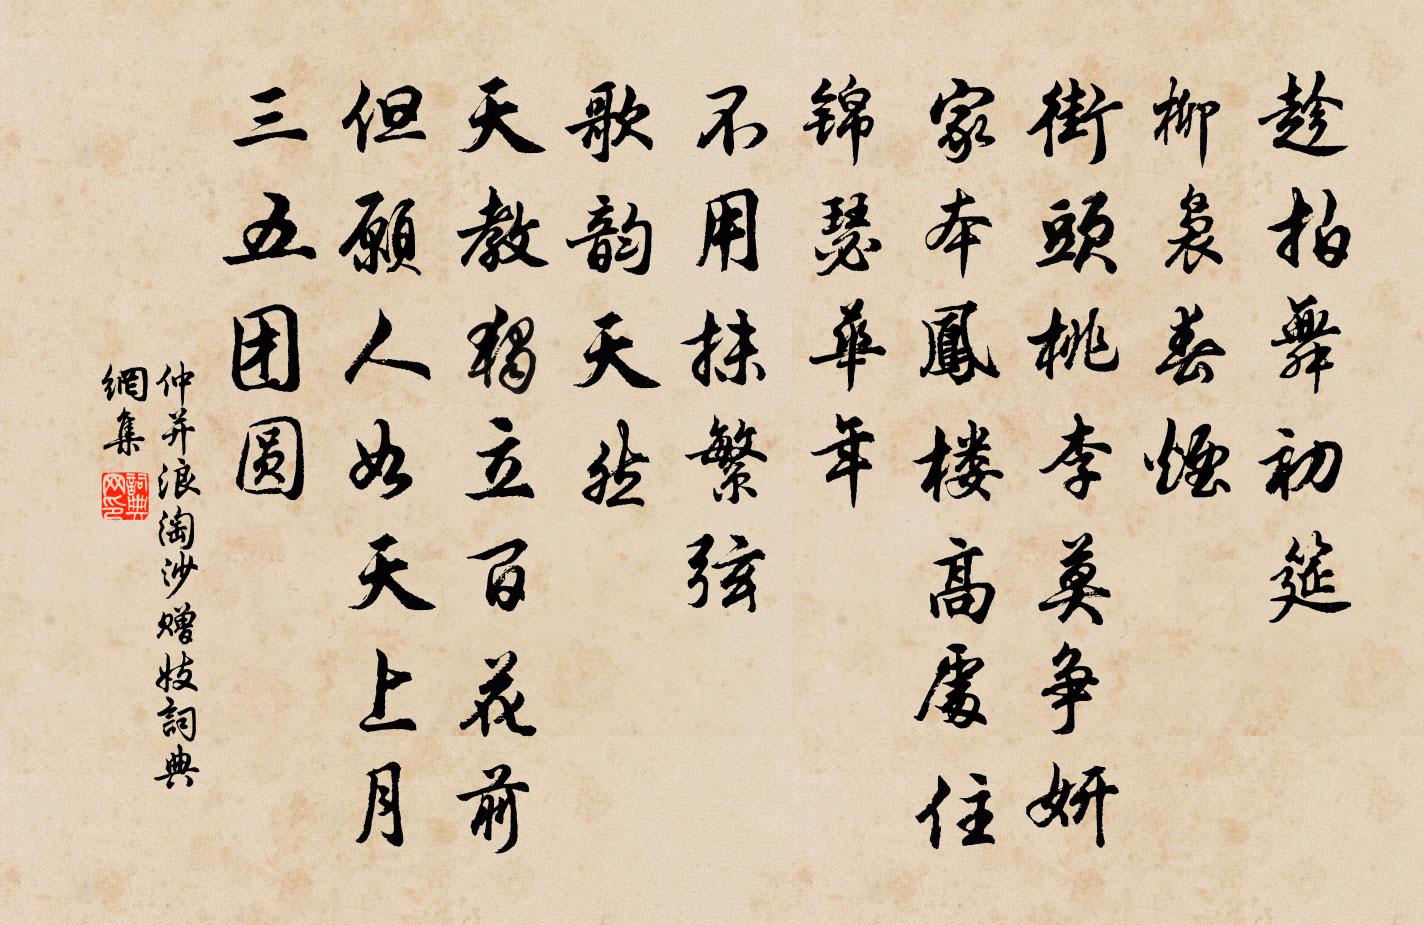 趁拍舞初筵
柳袅春煙
街頭桃李莫争妍
家本鳳楼高處住
锦瑟華年
不用抹繁弦
歌韵天然
天教獨立百花前
但願人如天上月
三五团圆
仲并浪淘沙赠妓詞典
網集
詞典网印